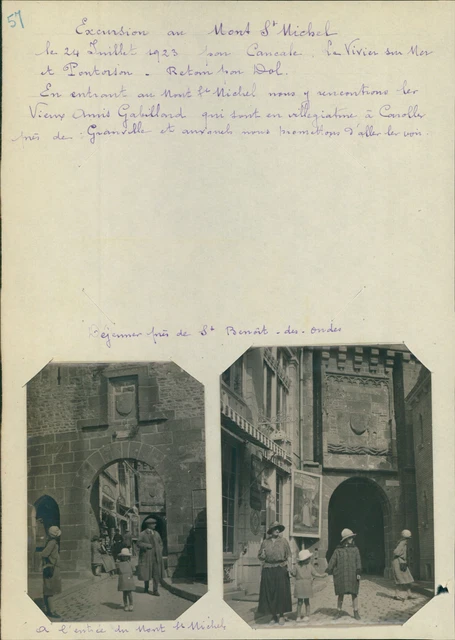 57
Excursion au Mont St Michel
le 24 Juillet 1923 par Cancale, Le Vivier sur Mer
et Pontorson - Retour par Dol.
En entrant au Mont St Michel nous y rencontrions les
Vieux Amis Gabillard qui sont en villégiature à Carolle
près de Granville et auxquels nous promettons d'aller les voir.
Déjeuner près de St Benoît-des-ondes
A l'entrée du Mont St Michel